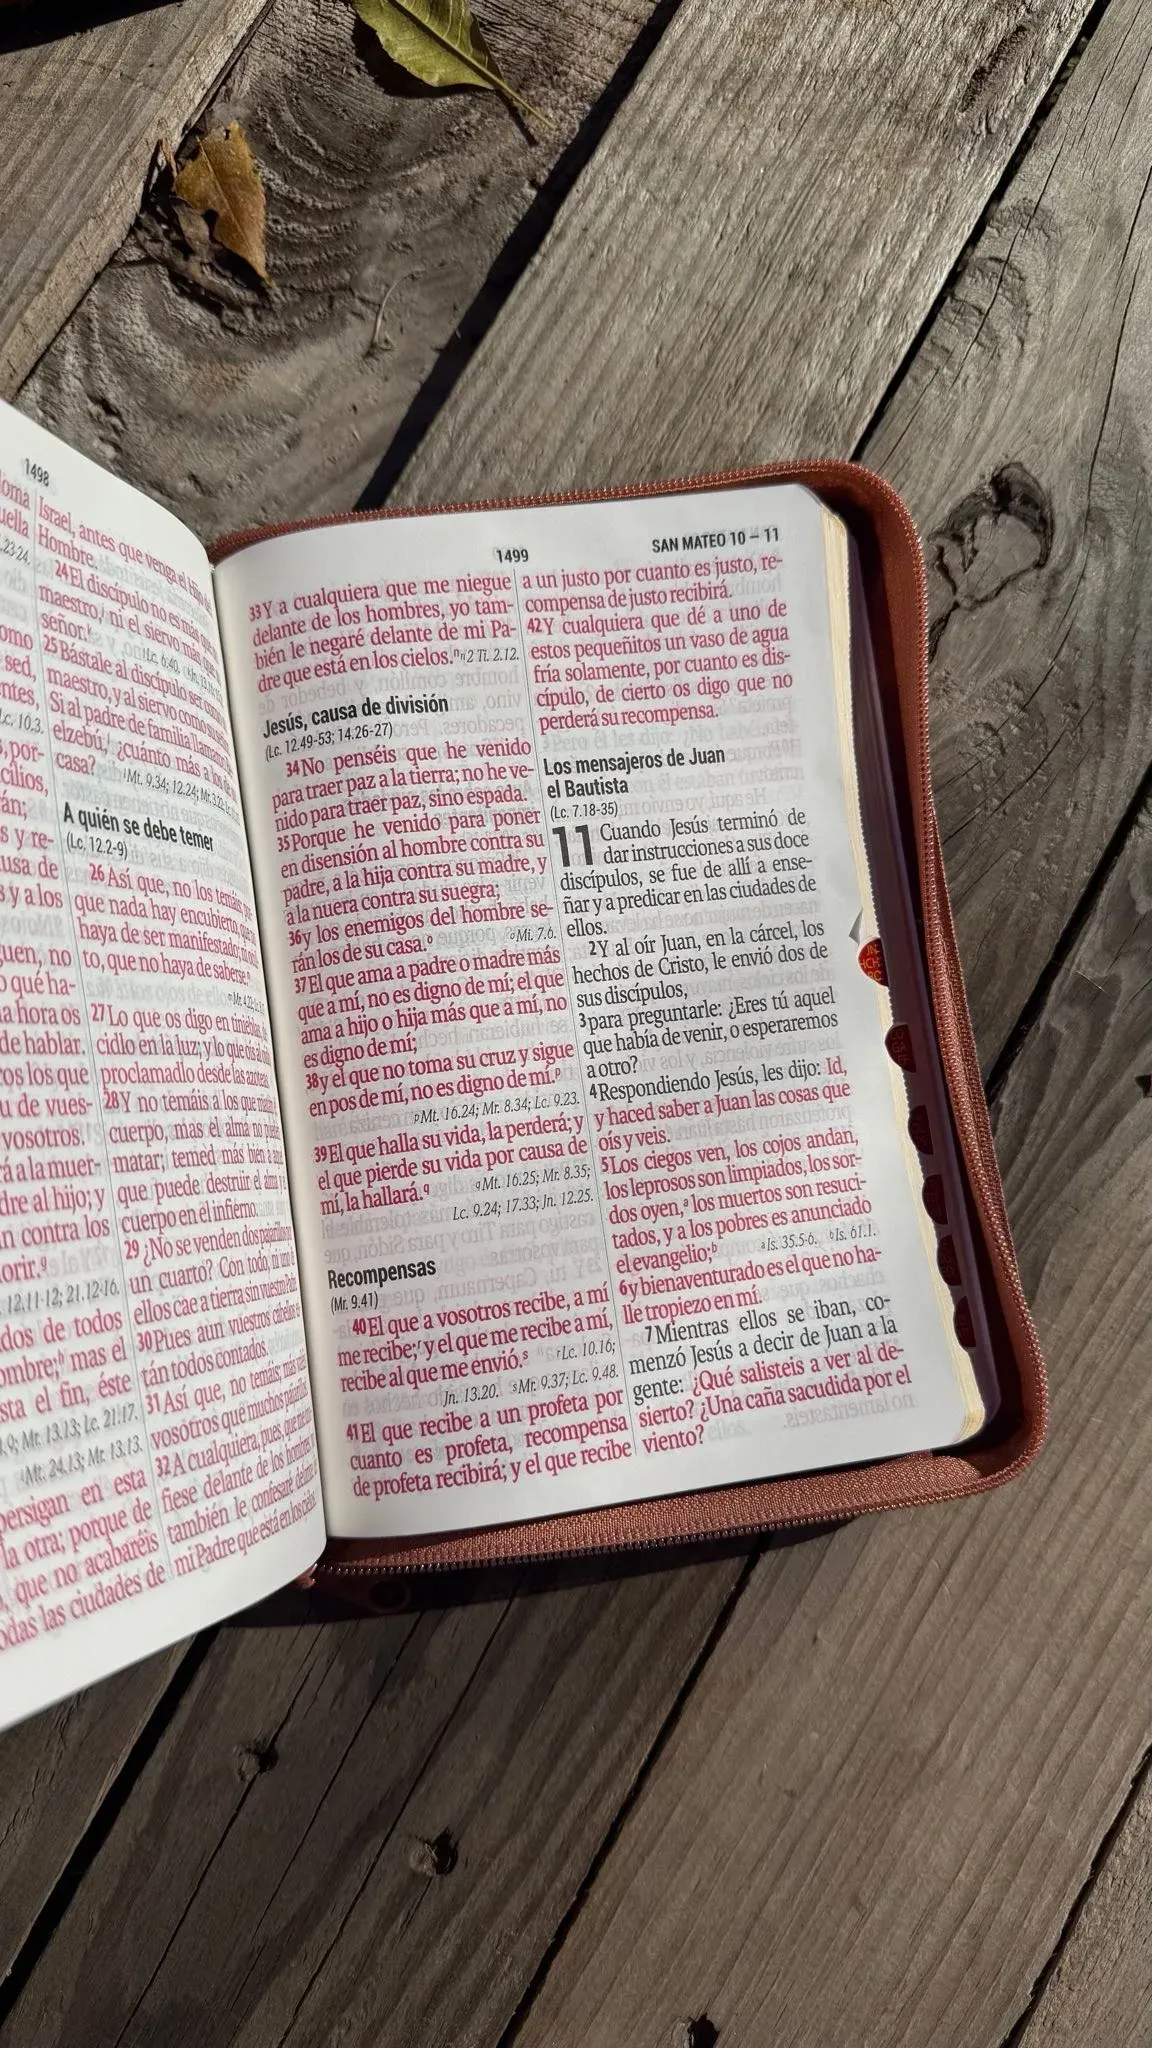 1498
loma
uella
23-24.
omo
sed,
ntes,
Lc. 10.3.
por-
cilios,
rán;
s y re-
usa de
s y a los
guen, no
o qué ha-
a hora os
de hablar.
ros los que
u de vues-
vosotros.
rá a la muer-
dre al hijo; y
n contra los
orir.g
12.11-12; 21.12-16.
dos de todos
ombre;h mas el
sta el fin, éste
.9; Mr. 13.13; Lc. 21.17.
iMt. 24.13; Mr. 13.13.
persigan en esta
la otra; porque de
, que no acabaréis
odas las ciudades de
Israel, antes que venga el Hijo del
Hombre.
24El discípulo no es más que
maestro, ni el siervo más que
señor.
25Bástale al discípulo ser como
maestro, y al siervo como su
Si al padre de familia llamaron
elzebú, ¿cuánto más a los de
casa? Mt. 9.34; 12.24; Mr. 3.22;
A quién se debe temer
(Lc. 12.2-9)
26Así que, no los temáis;
que nada hay encubierto, que
haya de ser manifestado; ni
to, que no haya de saberse.
27Lo que os digo en tinieblas,
cidlo en la luz; y lo que oís al
proclamadlo desde las azoteas.
28Y no temáis a los que matan
cuerpo, mas el alma no pueden
matar; temed más bien a aquel
que puede destruir el alma y el
cuerpo en el infierno.
29¿No se venden dos pajarillos
un cuarto? Con todo, ni uno de
ellos cae a tierra sin vuestro Padre.
30Pues aun vuestros cabellos
tán todos contados.
31Así que, no temáis; más
vosotros que muchos pajarillos.
32A cualquiera, pues, que me
fiese delante de los hombres,
también le confesaré delante de
mi Padre que está en los cielos.
1499
SAN MATEO 10 – 11
33Y a cualquiera que me niegue
delante de los hombres, yo tam-
bién le negaré delante de mi Pa-
dre que está en los cielos.n n2 Ti. 2.12.
Jesús, causa de división
(Lc. 12.49-53; 14.26-27)
34No penséis que he venido
para traer paz a la tierra; no he ve-
nido para traer paz, sino espada.
35Porque he venido para poner
en disensión al hombre contra su
padre, a la hija contra su madre, y
a la nuera contra su suegra;
36y los enemigos del hombre se-
rán los de su casa.o oMi. 7.6.
37El que ama a padre o madre más
que a mí, no es digno de mí; el que
ama a hijo o hija más que a mí, no
es digno de mí;
38y el que no toma su cruz y sigue
en pos de mí, no es digno de mí.p
pMt. 16.24; Mr. 8.34; Lc. 9.23.
39El que halla su vida, la perderá; y
el que pierde su vida por causa de
mí, la hallará.q qMt. 16.25; Mr. 8.35;
Lc. 9.24; 17.33; Jn. 12.25.
Recompensas
(Mr. 9.41)
40El que a vosotros recibe, a mí
me recibe;r y el que me recibe a mí,
recibe al que me envió.s rLc. 10.16;
Jn. 13.20. sMr. 9.37; Lc. 9.48.
41El que recibe a un profeta por
cuanto es profeta, recompensa
de profeta recibirá; y el que recibe
a un justo por cuanto es justo, re-
compensa de justo recibirá.
42Y cualquiera que dé a uno de
estos pequeñitos un vaso de agua
fría solamente, por cuanto es dis-
cípulo, de cierto os digo que no
perderá su recompensa.
Los mensajeros de Juan
el Bautista
(Lc. 7.18-35)
11 Cuando Jesús terminó de
dar instrucciones a sus doce
discípulos, se fue de allí a ense-
ñar y a predicar en las ciudades de
ellos.
2Y al oír Juan, en la cárcel, los
hechos de Cristo, le envió dos de
sus discípulos,
3para preguntarle: ¿Eres tú aquel
que había de venir, o esperaremos
a otro?
4Respondiendo Jesús, les dijo: Id,
y haced saber a Juan las cosas que
oís y veis.
5Los ciegos ven, los cojos andan,
los leprosos son limpiados, los sor-
dos oyen,a los muertos son resuci-
tados, y a los pobres es anunciado
el evangelio;b aIs. 35.5-6. bIs. 61.1.
6y bienaventurado es el que no ha-
lle tropiezo en mí.
7Mientras ellos se iban, co-
menzó Jesús a decir de Juan a la
gente: ¿Qué salisteis a ver al de-
sierto? ¿Una caña sacudida por el
viento?